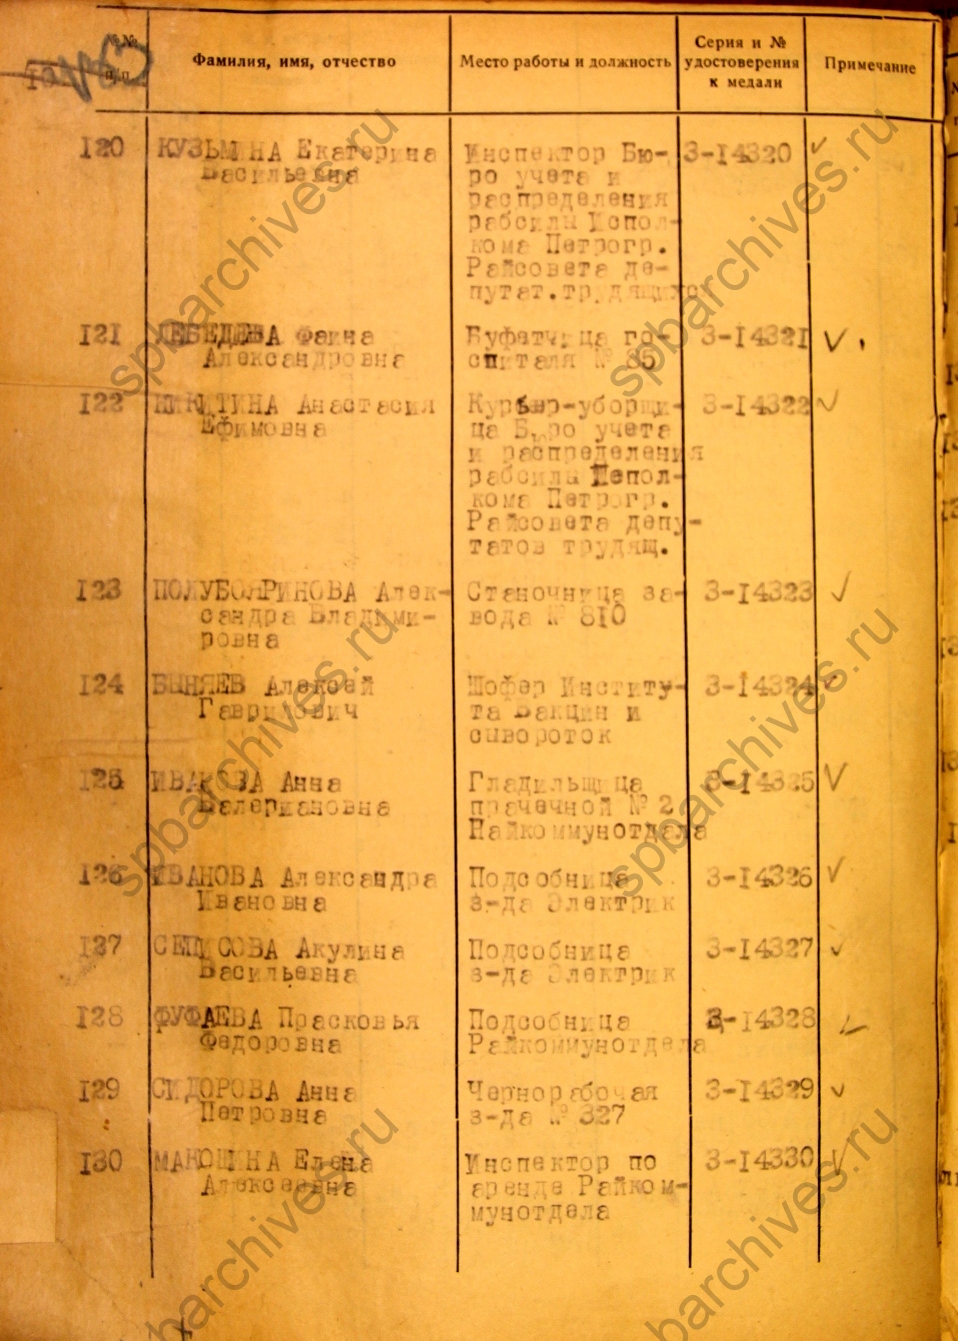 №№ п.п.
Фамилия, имя, отчество
Место работы и должность
Серия и №
удостоверения
к медали
Примечание
120 КУЗЬМИНА Екатерина
Васильевна
Инспектор Бю-
ро учета и
распределения
рабсилы Испол-
кома Петрогр.
Райсовета де-
путат.трудящихся
З-14320
121 ЛЕБЕДЕВА Фаина
Александровна
Буфетчица го-
спиталя № 85
З-14321
122 НИКИТИНА Анастасия
Ефимовна
Курьер-уборщи-
ца Бюро учета
и распределения
рабсилы Испол-
кома Петрогр.
Райсовета депу-
татов трудящ.
З-14322
123 ПОЛУБОЯРИНОВА Алек-
сандра Владими-
ровна
Станочница за-
вода № 810
З-14323
124 БЫНЯЕВ Алексей
Гаврилович
Шофер Институ-
та Вакцин и
сывороток
З-14324
125 Анна
Валериановна
Гладильщица
прачечной № 2
Райкоммунотдела
З-14325
126 ИВАНОВА Александра
Ивановна
Подсобница
з-да Электрик
З-14326
127 Акулина
Васильевна
Подсобница
з-да Электрик
З-14327
128 ФУФАЕВА Прасковья
Федоровна
Подсобница
Райкоммунотдела
З-14328
129 СИДОРОВА Анна
Петровна
Чернорабочая
з-да № 327
З-14329
130 Елена
Алексеевна
Инспектор по
аренде Райком-
мунотдела
З-14330
spbarchives.ru
spbarchives.ru
spbarchives.ru
spbarchives.ru
spbarchives.ru
spbarchives.ru